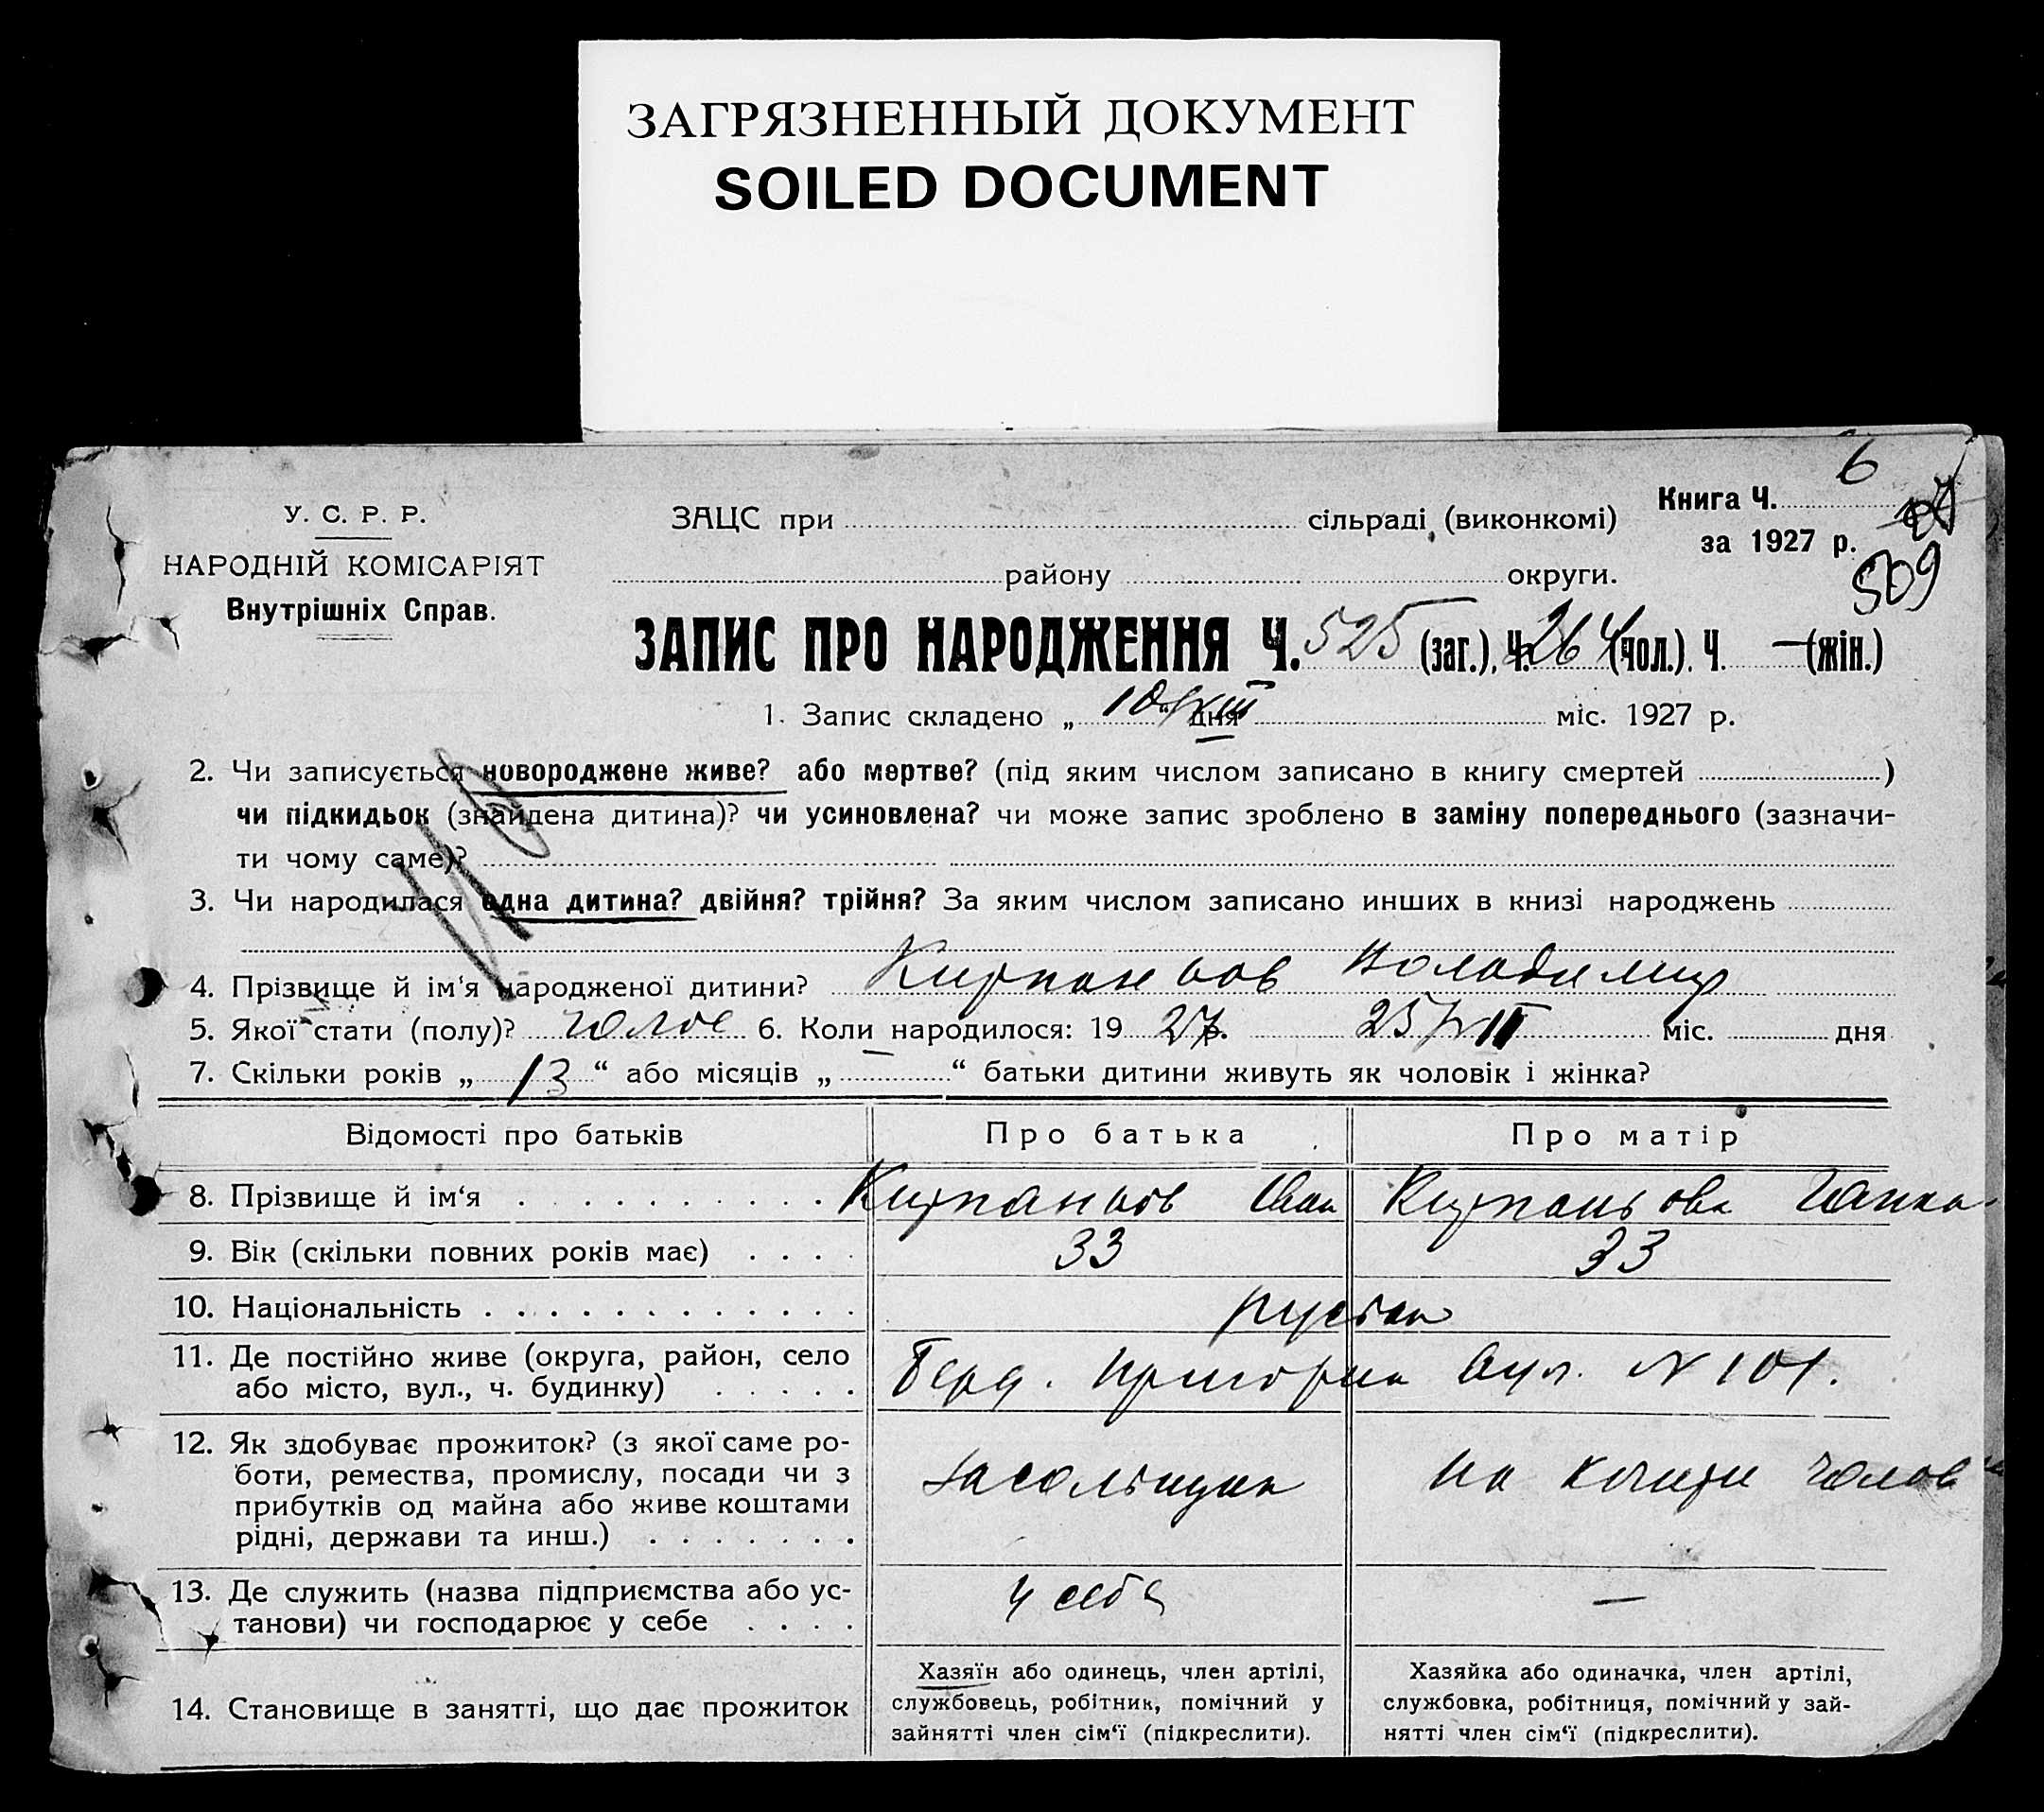 ЗАГРЯЗНЕННЫЙ ДОКУМЕНТ
SOILED DOCUMENT
6
Книга Ч.
за 1927 р.
509
У. С. Р. Р.
НАРОДНІЙ КОМІСАРІЯТ
Внутрішніх Справ.
ЗАЦС при сільраді (виконкомі)
району округи.
ЗАПИС ПРО НАРОДЖЕННЯ Ч. 525 (заг.), Ч. 264 (чол.). Ч. — (жін.)
1. Запис складено „ 10 “ дня VIII міс. 1927 р.
2. Чи записується новороджене живе? або мертве? (під яким числом записано в книгу смертей )
чи підкидьок (знайдена дитина)? чи усиновлена? чи може запис зроблено в заміну попереднього (зазначи-
ти чому саме)?
3. Чи народилася одна дитина? двійня? трійня? За яким числом записано инших в книзі народжень
4. Прізвище й ім‘я народженої дитини? Кирпаньов Володимир
5. Якої стати (полу)? чолов 6. Коли народилося: 19 27 р. 25/VII міс. дня
7. Скільки років „ 13 “ або місяців „ — “ батьки дитини живуть як чоловік і жінка?
Відомості про батьків Про батька Про матір
8. Прізвище й ім‘я Кирпаньов Іван Кирпаньова Ганна
9. Вік (скільки повних років має) 33 33
10. Національність
11. Де постійно живе (округа, район, село
або місто, вул., ч. будинку)
Берд. вул. № 101.
12. Як здобуває прожиток? (з якої саме ро-
боти, ремества, промислу, посади чи з
прибутків од майна або живе коштами
рідні, держави та инш.)
на кошти чолов
13. Де служить (назва підприємства або ус-
танови) чи господарює у себе
у себе —
14. Становище в занятті, що дає прожиток
Хазяїн або одинець, член артілі,
службовець, робітник, помічний у
зайнятті член сім‘ї (підкреслити).
Хазяйка або одиначка, член артілі,
службовка, робітниця, помічний у зай-
нятті член сім‘ї (підкреслити).